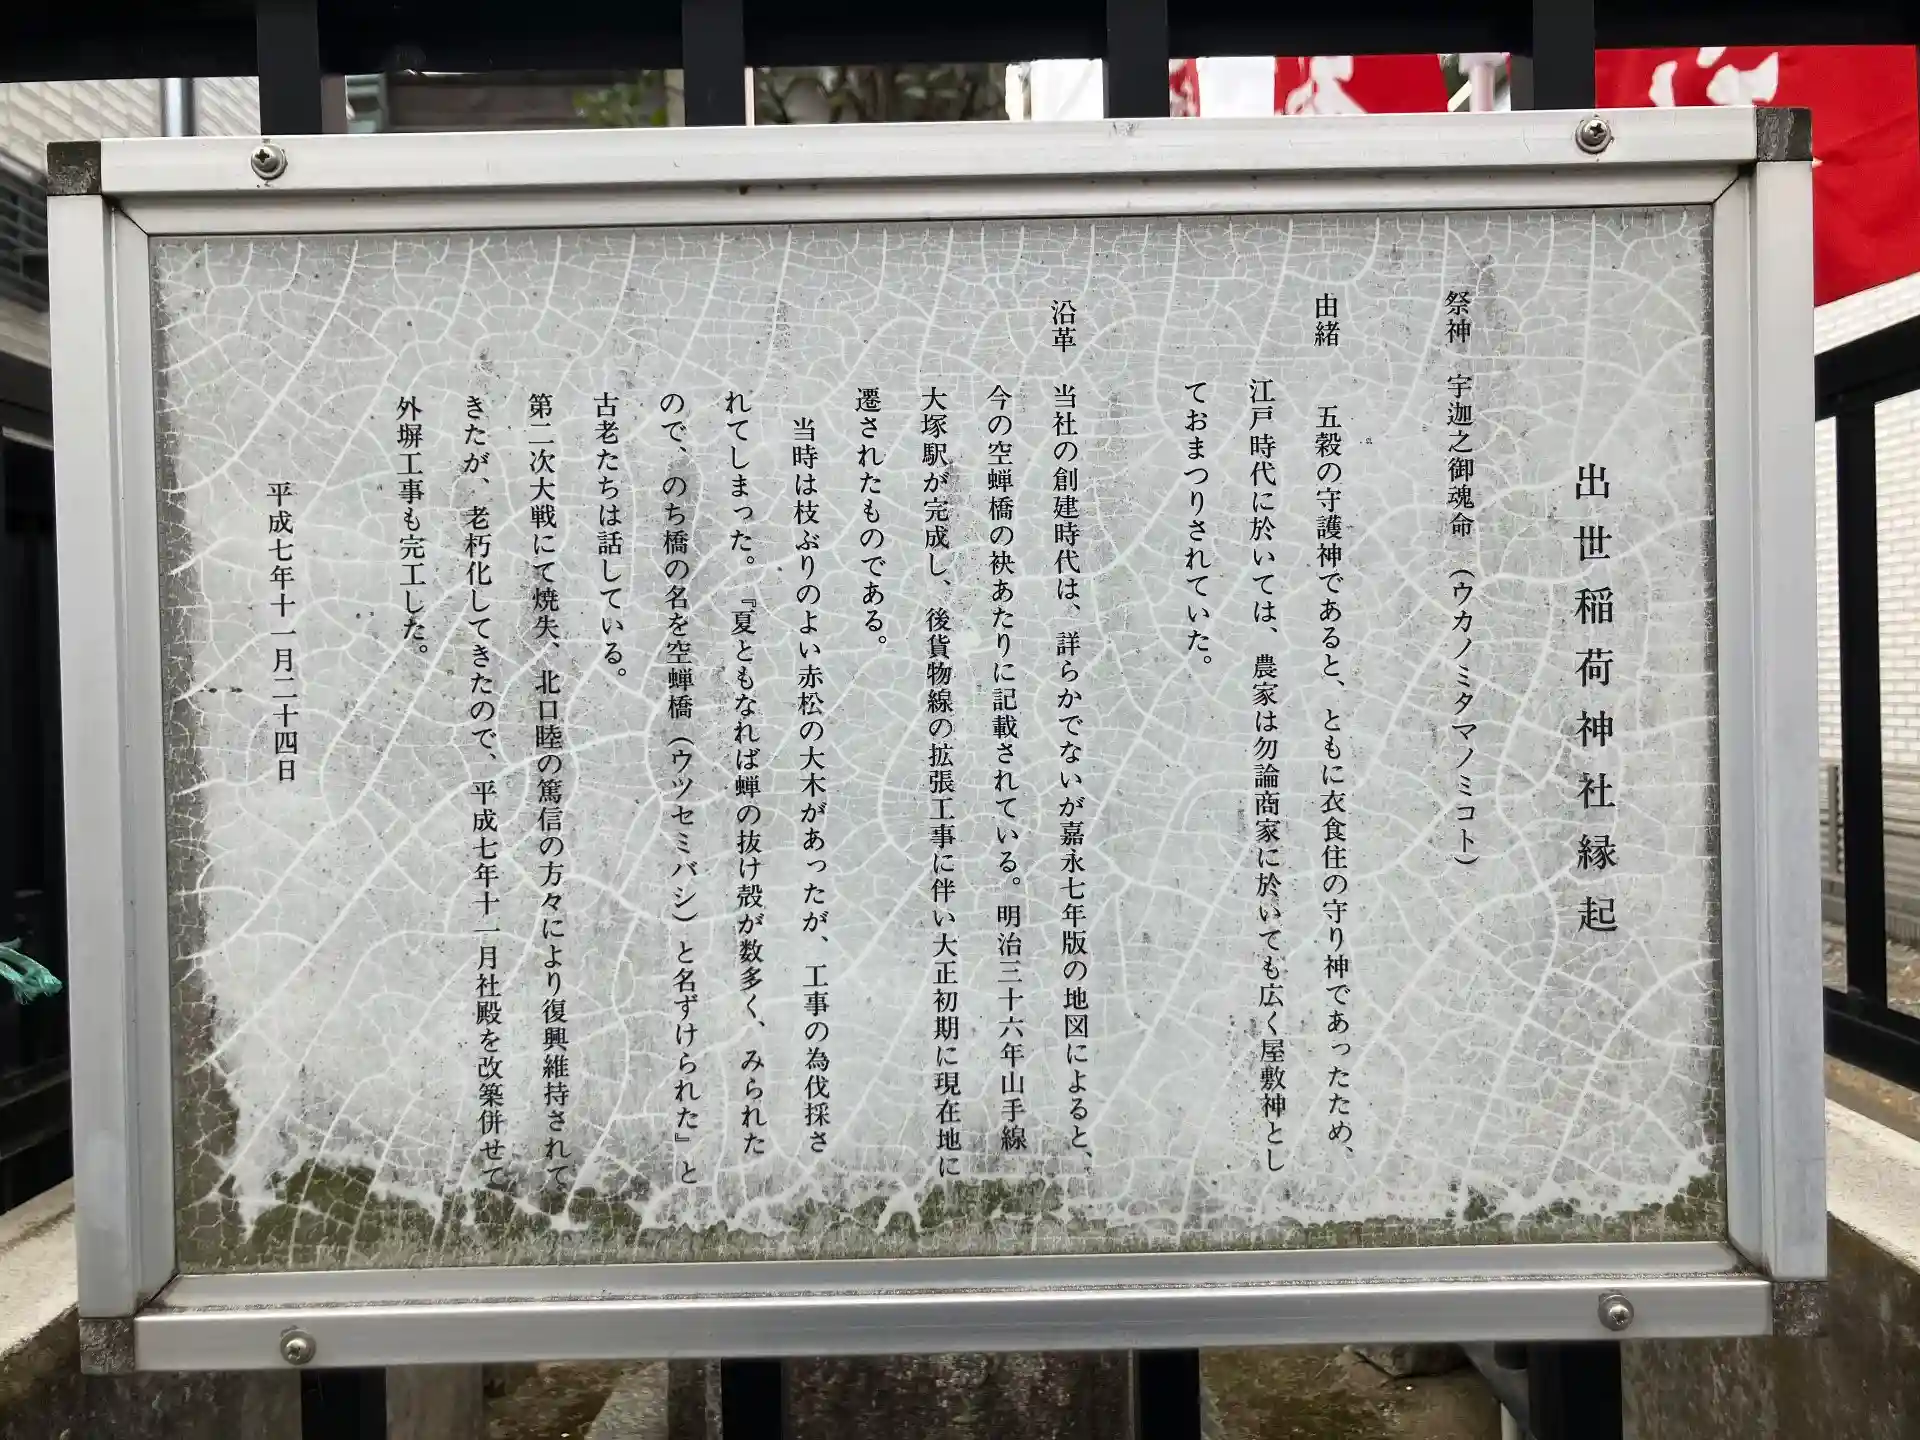 出世稲荷神社縁起
祭神　宇迦之御魂命　（ウカノミタマノミコト）
由緒　五穀の守護神であると、ともに衣食住の守り神であったため、
江戸時代に於いては、農家は勿論商家に於いても広く屋敷神とし
ておまつりされていた。
沿革　当社の創建時代は、詳らかでないが嘉永七年版の地図によると、
今の空蝉橋の袂あたりに記載されている。明治三十六年山手線
大塚駅が完成し、後貨物線の拡張工事に伴い大正初期に現在地に
遷されたものである。
当時は枝ぶりのよい赤松の大木があったが、工事の為伐採さ
れてしまった。『夏ともなれば蝉の抜け殻が数多く、みられた
ので、のち橋の名を空蝉橋（ウツセミバシ）と名ずけられた』と
古老たちは話している。
第二次大戦にて焼失、北口睦の篤信の方々により復興維持されて
きたが、老朽化してきたので、平成七年十一月社殿を改築併せて
外塀工事も完工した。
平成七年十一月二十四日